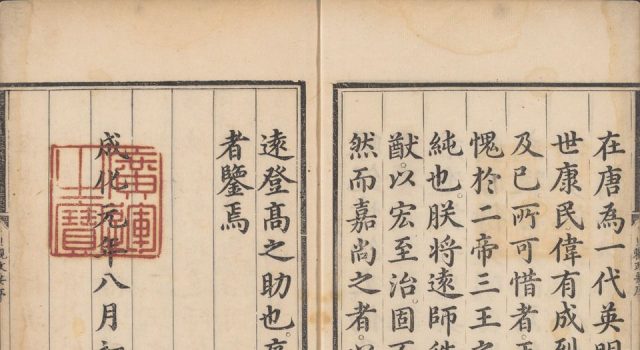 在唐為一代英明
世康民偉有成烈
及已所可惜者
愧於二帝三王
純也朕將遠師
猷以宏至治固
然而嘉尚之者
遠登髙之助也
者鑒焉
成化元年八月初
廣運之寶
觀政要序